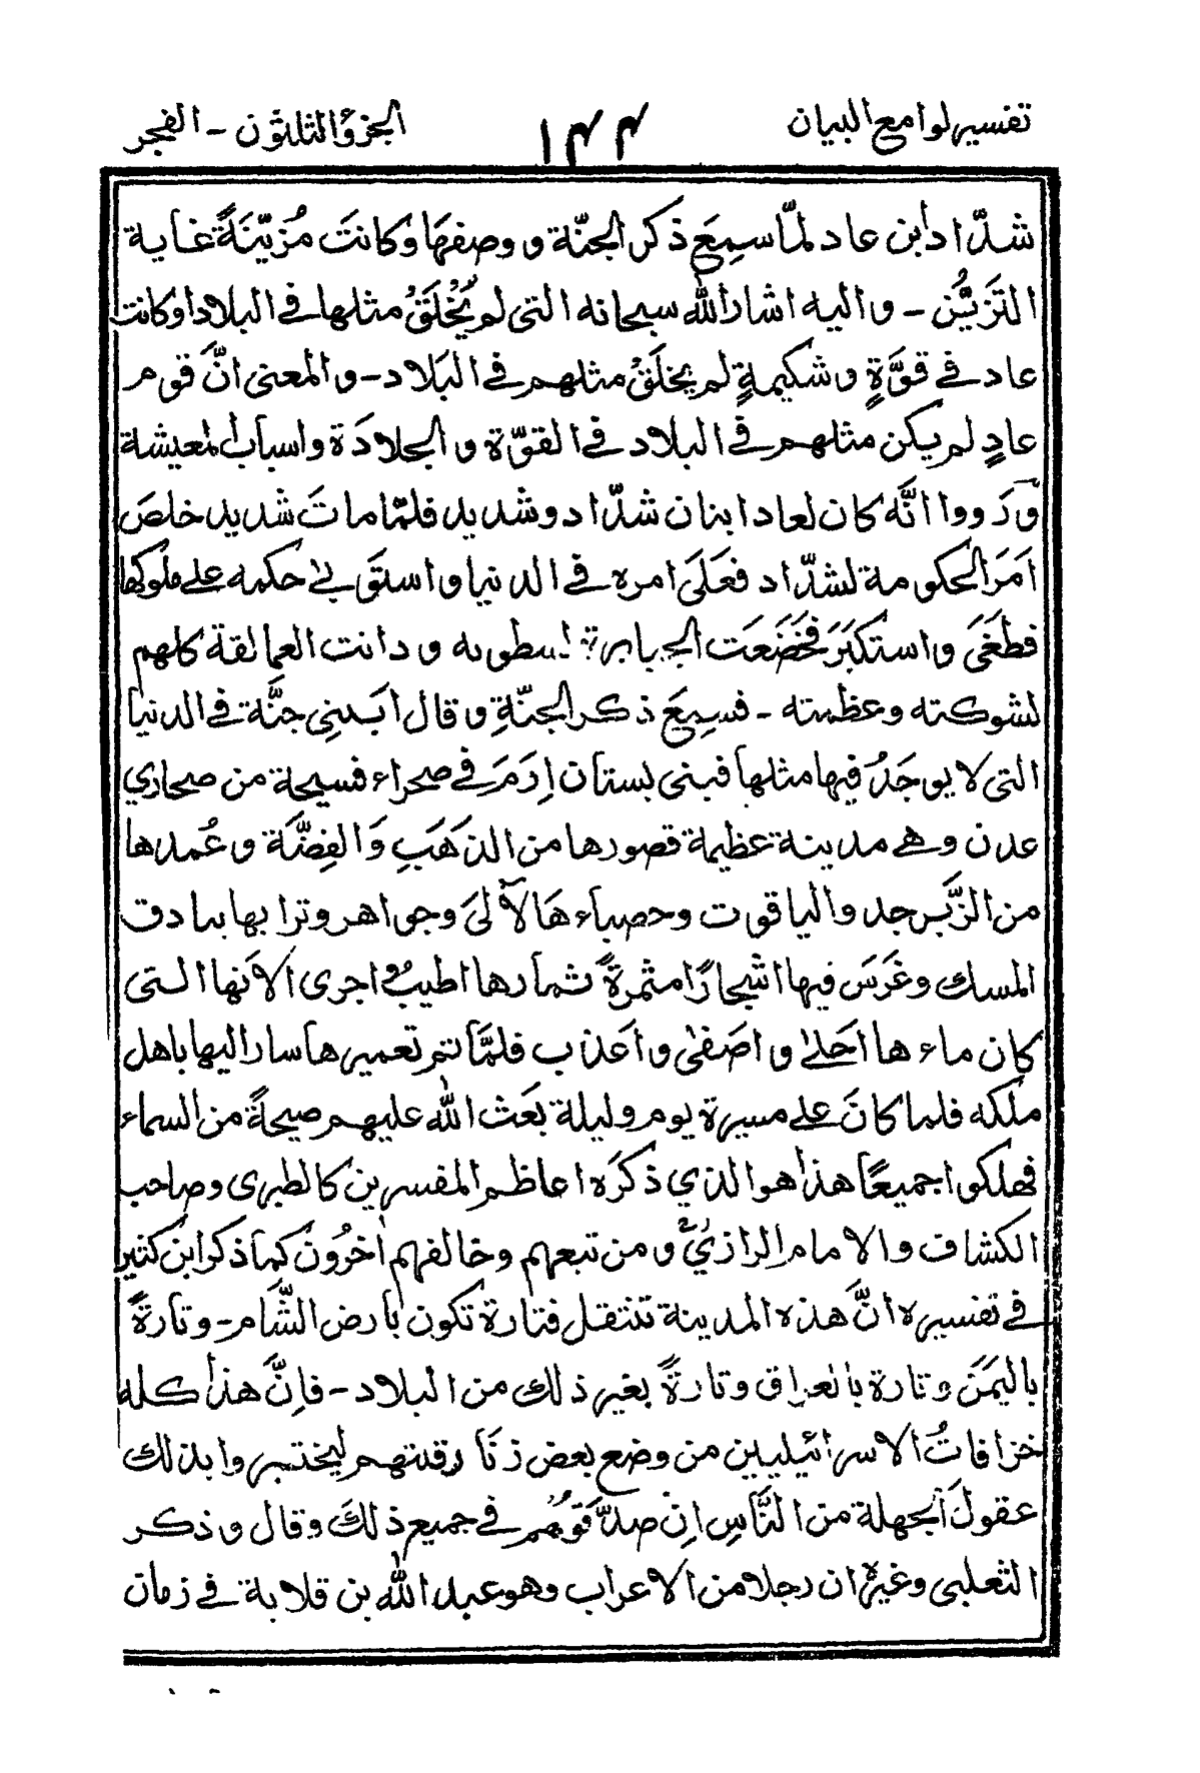 تفسير لوامع البيان
١٣٣
الجزؤ الثلثون - الفجر
شدّاد ابن عاد لمّا سمِعَ ذكر الجنّة و وصفهَا وكانتَ مُزيّنَةً غاية
التَزيُّن - واليه اشار الله سبحانه التى لم يُخْلَقْ مثلها فى البلاد اوكانت
عاد فى قوَّةٍ وشكيمةٍ لم يخلَقْ مثلهم فى البَلاد - والمعنى انَّ قوم
عادٍ لم يكن مثلهم فى البلاد فى القوّة و الجلادَة واسباب المعيشة
ورَووا انَّه كان لعاد ابنان شدّاد وشديد فلمّا ماتَ شديد خلصَ
اَمَر الحكومة لشدّاد فعَلَىَ امره فى الدنيا واستوَلى حكمه على ملوكها
فطَغَىَ واستكبَرَ فخَضَعَت الجبابرة لسطوبه ودانت العمالقة كلهم
لشوكته وعظمته - فسمِعَ ذكر الجنّةِ وقال ابَــنِى جنَّة فى الدنيا
التى لا يوجَدُ فيها مثلها فبنى بستان اِرَمَ فى صحراء فسيحة من صحاري
عدن وهى مدينة عظيمة قصورها من الذهَبِ وَالفِضَّة وعُمدها
من الزَّبرجد والياقوت وحصباءهَا لآلىَ وجواهر وترابها بنادق
المسك وغَرَسَ فيها اشجارًا مثمرةً ثمارها اطيبُ واجرى الاَنها التى
كان ماءها اَحَلىٰ و اصَفىٰ واَعَذب فلمَّا تم تعميرها سار اليها باهل
ملكه فلما كانَ على مسيرة يوم وليلة بَعَث الله عليهم صيحةً من السماء
فهلكوا جميعًا هذا هو الذي ذكرَه اعاظم المفسرين كالطبرى وصاحب
الكشاف والامام الرازيؒ ومن تبعهم وخالفهم اٰخرُونَ كما ذكر ابن كثير
فى تفسيره انَّ هذه المدينة تنتقل فتارة تكون بارض الشَّام - وتارةً
باليمَنَ وتارة بالعراق وتارةً بغير ذلك من البلاد - فاِنَّ هذا كله
خزافاتُ الاسرائيليين من وضع بعض زنَادقتهم ليختبروا بذلك
عقولَ الجهلة من النَّاسِ اِن صدَّقوُهُم فى جميع ذلكَ وقال وذكر
الثعلبى وغيره ان رجلا من الاعراب وهو عبد الله بن قلابة فى زمان